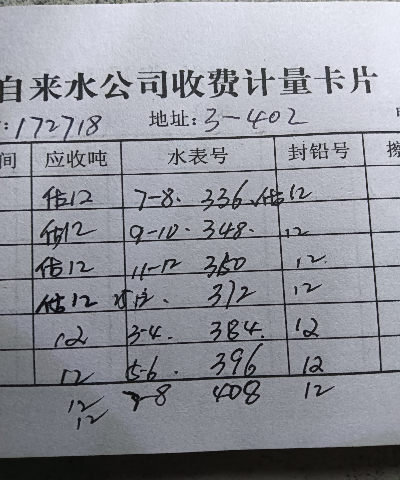 自来水公司收费计量卡片
: 172718 地址: 3-402
间 应收吨 水表号 封铅号
估12 7-8. 336. 估12
估12 9-10. 348. 12
估12 11-12 360 12.
估12 312 12
12 3-4. 384. 12
12 5-6. 396 12
12 7-8 408 12
12